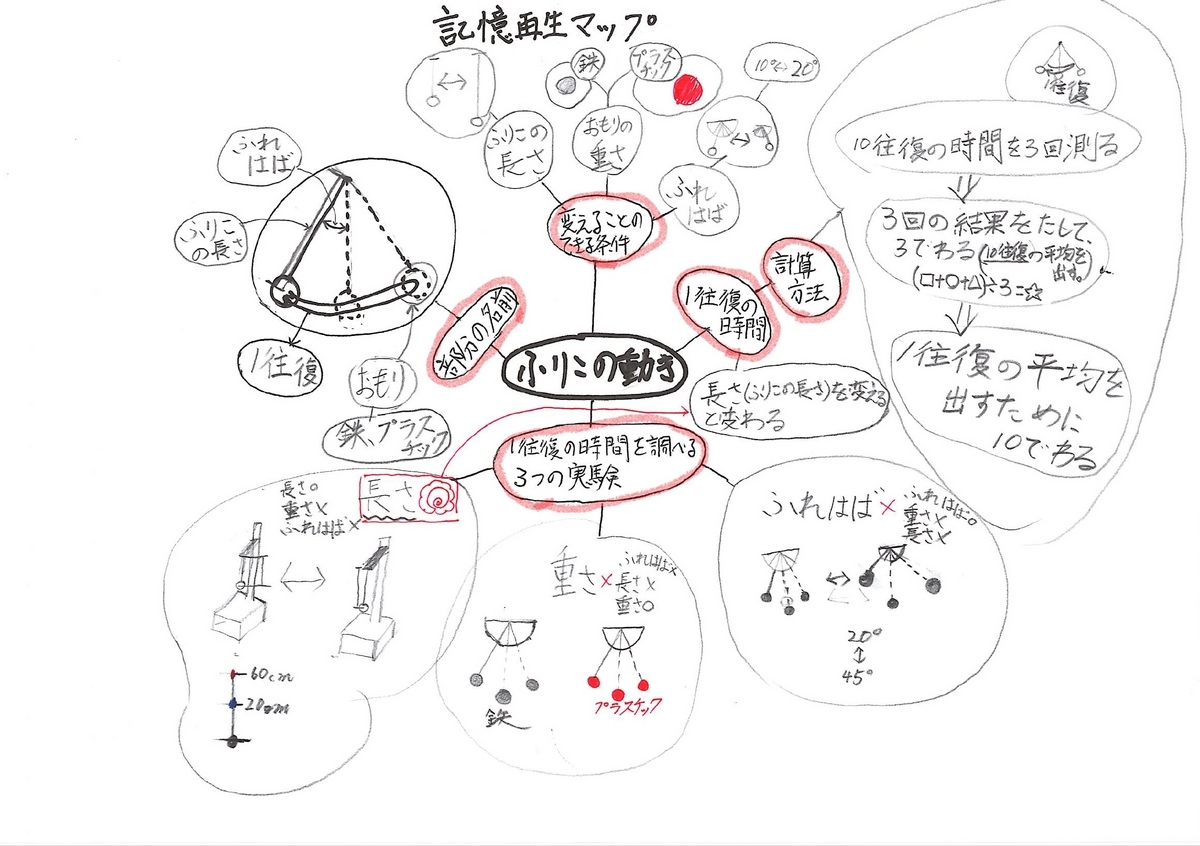 記憶再生マップ
鉄
プラス
チック
10°↔20°
1往復
ふりこの
長さ
おもりの
重さ
ふれ
はば
変えることの
できる条件
ふれ
はば
ふりこ
の長さ
1往復
おもり
鉄、プラス
チック
部分の名前
ふりこの動き
1往復の
時間
計算
方法
10往復の時間を3回測る
3回の結果をたして、
3でわる(10往復の平均を
出す。)
(□+○+△)÷3=☆
1往復の平均を
出すために
10でわる
長さ(ふりこの長さ)を変える
と変わる
1往復の時間を調べる
3つの実験
長さ
長さ○
重さ×
ふれはば×
60cm
20cm
重さ×
ふれはば×
長さ×
重さ○
鉄
プラスチック
ふれはば×
ふれはば○
重さ×
長さ×
20°
↕
45°